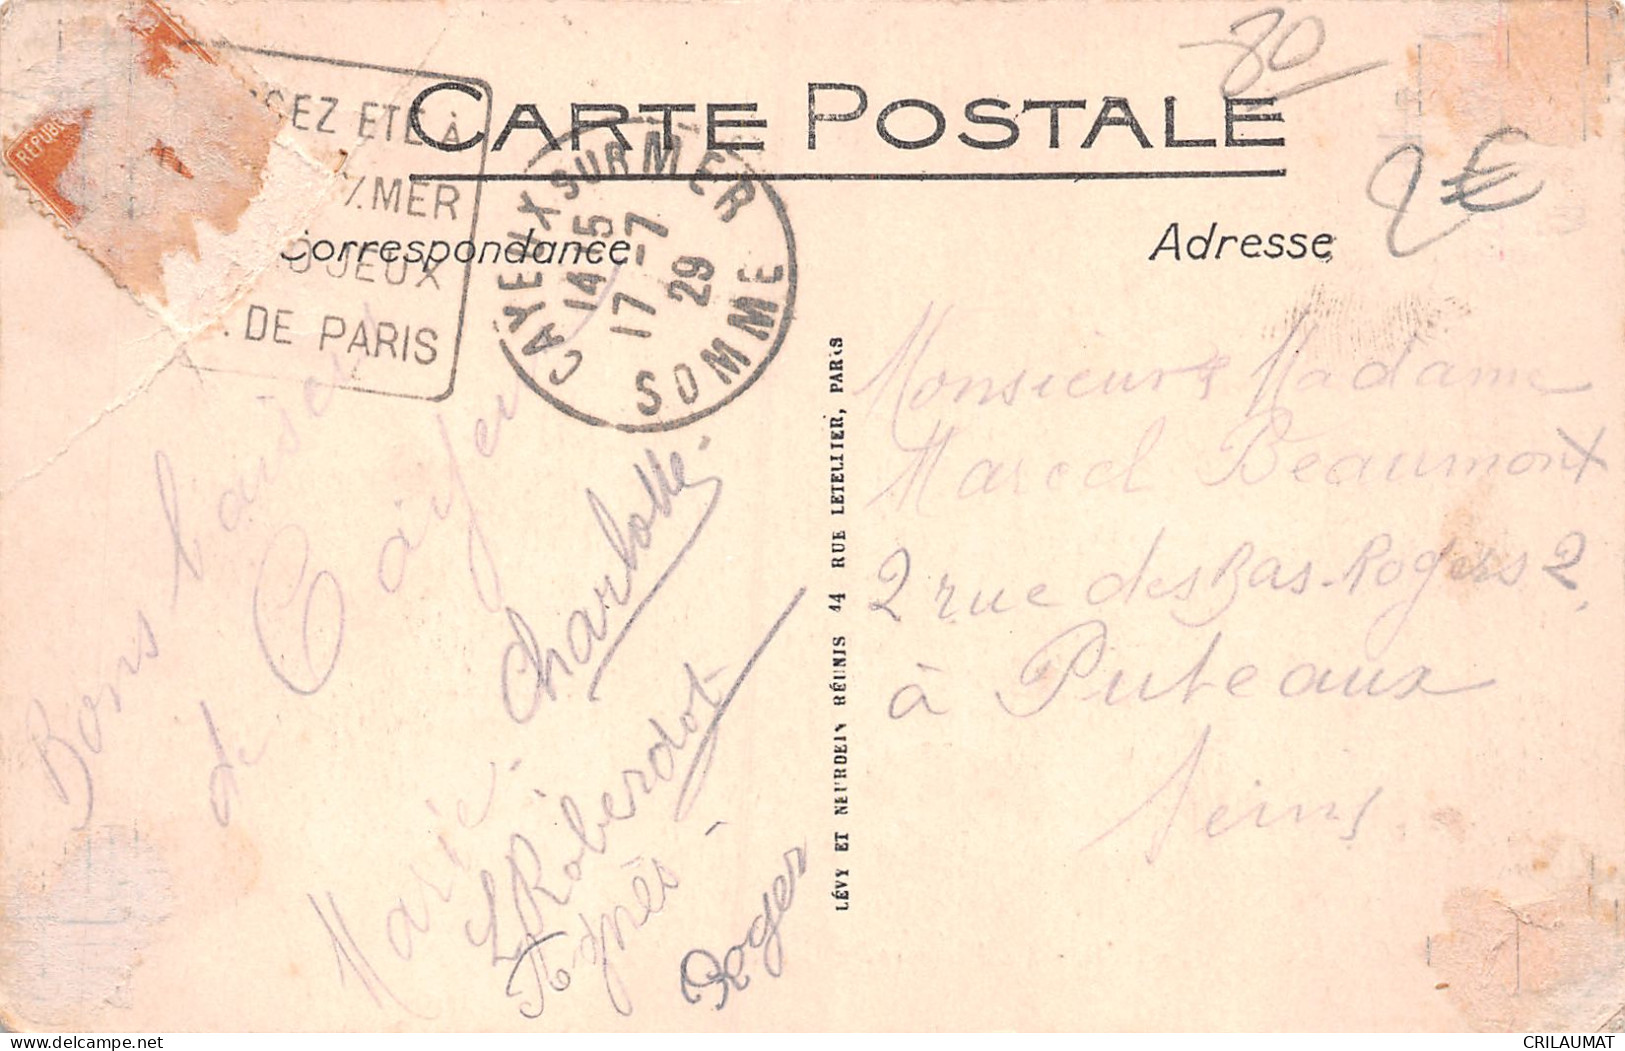 30
CARTE POSTALE
2€
SEZ ETE À
S/MER
JEUX
. DE PARIS
RÉPUBL
CAYEUX SUR MER
14 15
17 -7
29
SOMME
Correspondance
Adresse
Bons baisers
de Cayeux
Charlotte.
Marie.
L Roberdot
Agnès.
Roger
LÉVY ET NEURDEIN RÉUNIS 44 RUE LETELLIER, PARIS
Monsieur & Madame
Marcel Beaumont
2 rue des Bas-Rogers 2
à Puteaux
Seine.
CRILAUMAT